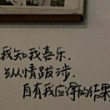 我知我喜乐
纵情跋涉
自有我应得的结果